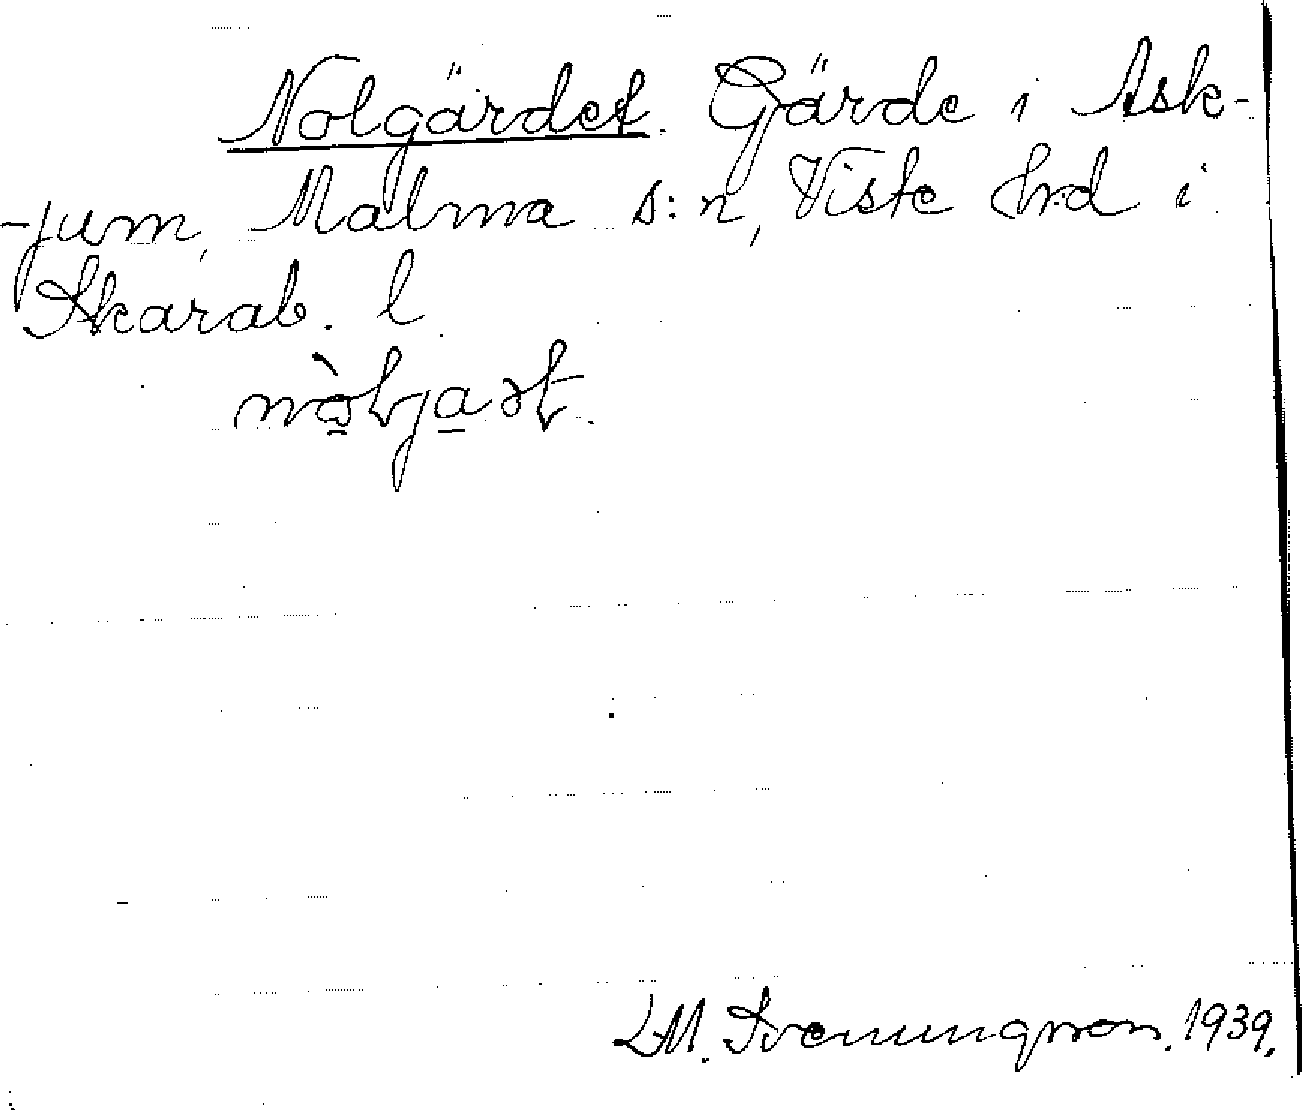 Nolgärdet. Gärde i Ask-
-jum, Malma s:n, Viste hrd i
Skarab. l
L M. Svenungsson. 1939.